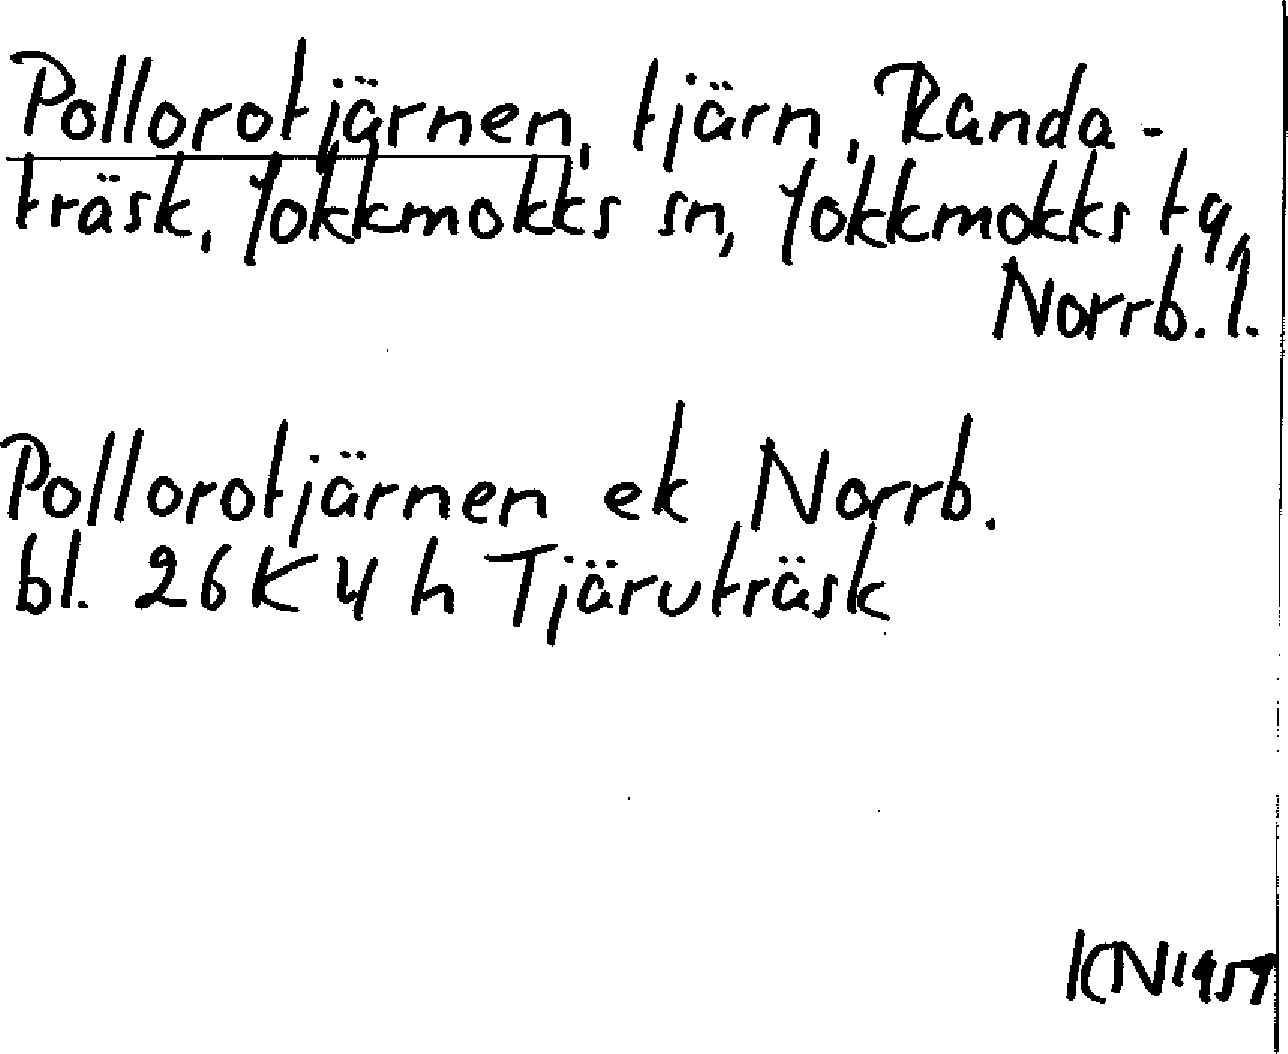 Pollorotjärnen, tjärn, Randa-
träsk, Jokkmokks sn, Jokkmokks tg,
Norrb. l.
Pollorotjärnen ek Norrb.
bl. 26 K 4 h Tjäruträsk
KN 1957